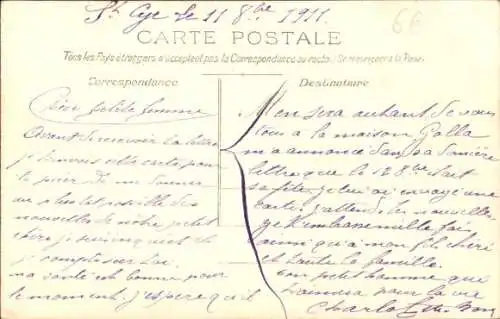 St Cyr le 11 8bre 1911
66
CARTE POSTALE
Tous les Pays étrangers n'acceptent pas la Correspondance au recto (Se renseigner à la Poste)
Correspondance
Destinataire
Chère petite femme
Avant de recevoir ta lettre
je envoie cette carte pour
le prier de me donner
au plus tot possible des
nouvelles de notre petit
chéri je suis inquiet de
compte sur toi
ma santé est bonne pour
le moment. j'espère qu'il
Mon sera autant de vous
tous a la maison Galla
m'a annoncé dans sa dernière
lettre que le 12 8bre c'est
sa fête je lui ai envoyé une
carte j'attends les nouvelles
je t'embrasse mille fois
ainsi qu'à mon fils chéri
et toute la famille.
ton petit homme qui
t'aimera pour la vie